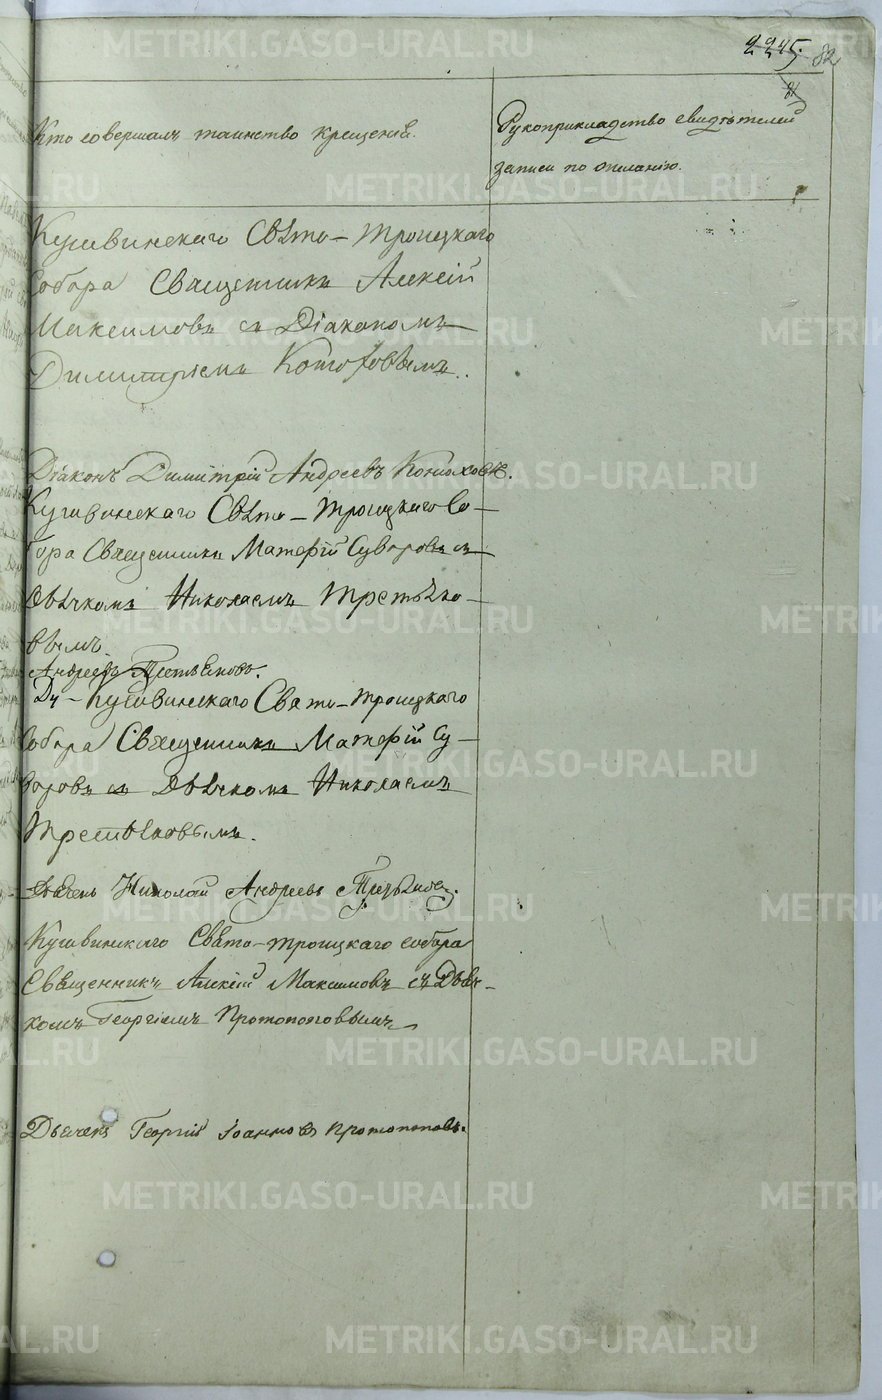 2245. 82
81
Кто совершалъ таинство крещенія.
Рукоприкладство свидѣтелей
записи по желанію.
Кушвинскаго Свѣто-Троицкаго
Собора Священникъ Алексій
Максимовъ съ Діакономъ
Димитріемъ Конюховымъ.
Діаконъ Димитрій Андреевъ Конюховъ.
Кушвинскаго Свѣто-Троицкаго Со-
бора Священникъ Матфій Суворовъ съ
Дьячкомъ Николаемъ Третьяко-
вымъ.
Андреевъ Третьяковъ.
Кушвинскаго Свято-Троицкаго
Собора Священникъ Матфій Су-
воровъ съ Дьячкомъ Николаемъ
Третьяковымъ.
Дьячекъ Николай Андреевъ Третьяковъ.
Кушвинскаго Свято-Троицкаго собора
Священникъ Алексій Максимовъ съ Дьяч-
комъ Георгіемъ Протопоповымъ
Дьячекъ Георгій Іоанновъ Протопоповъ.
METRIKI.GASO-URAL.RU